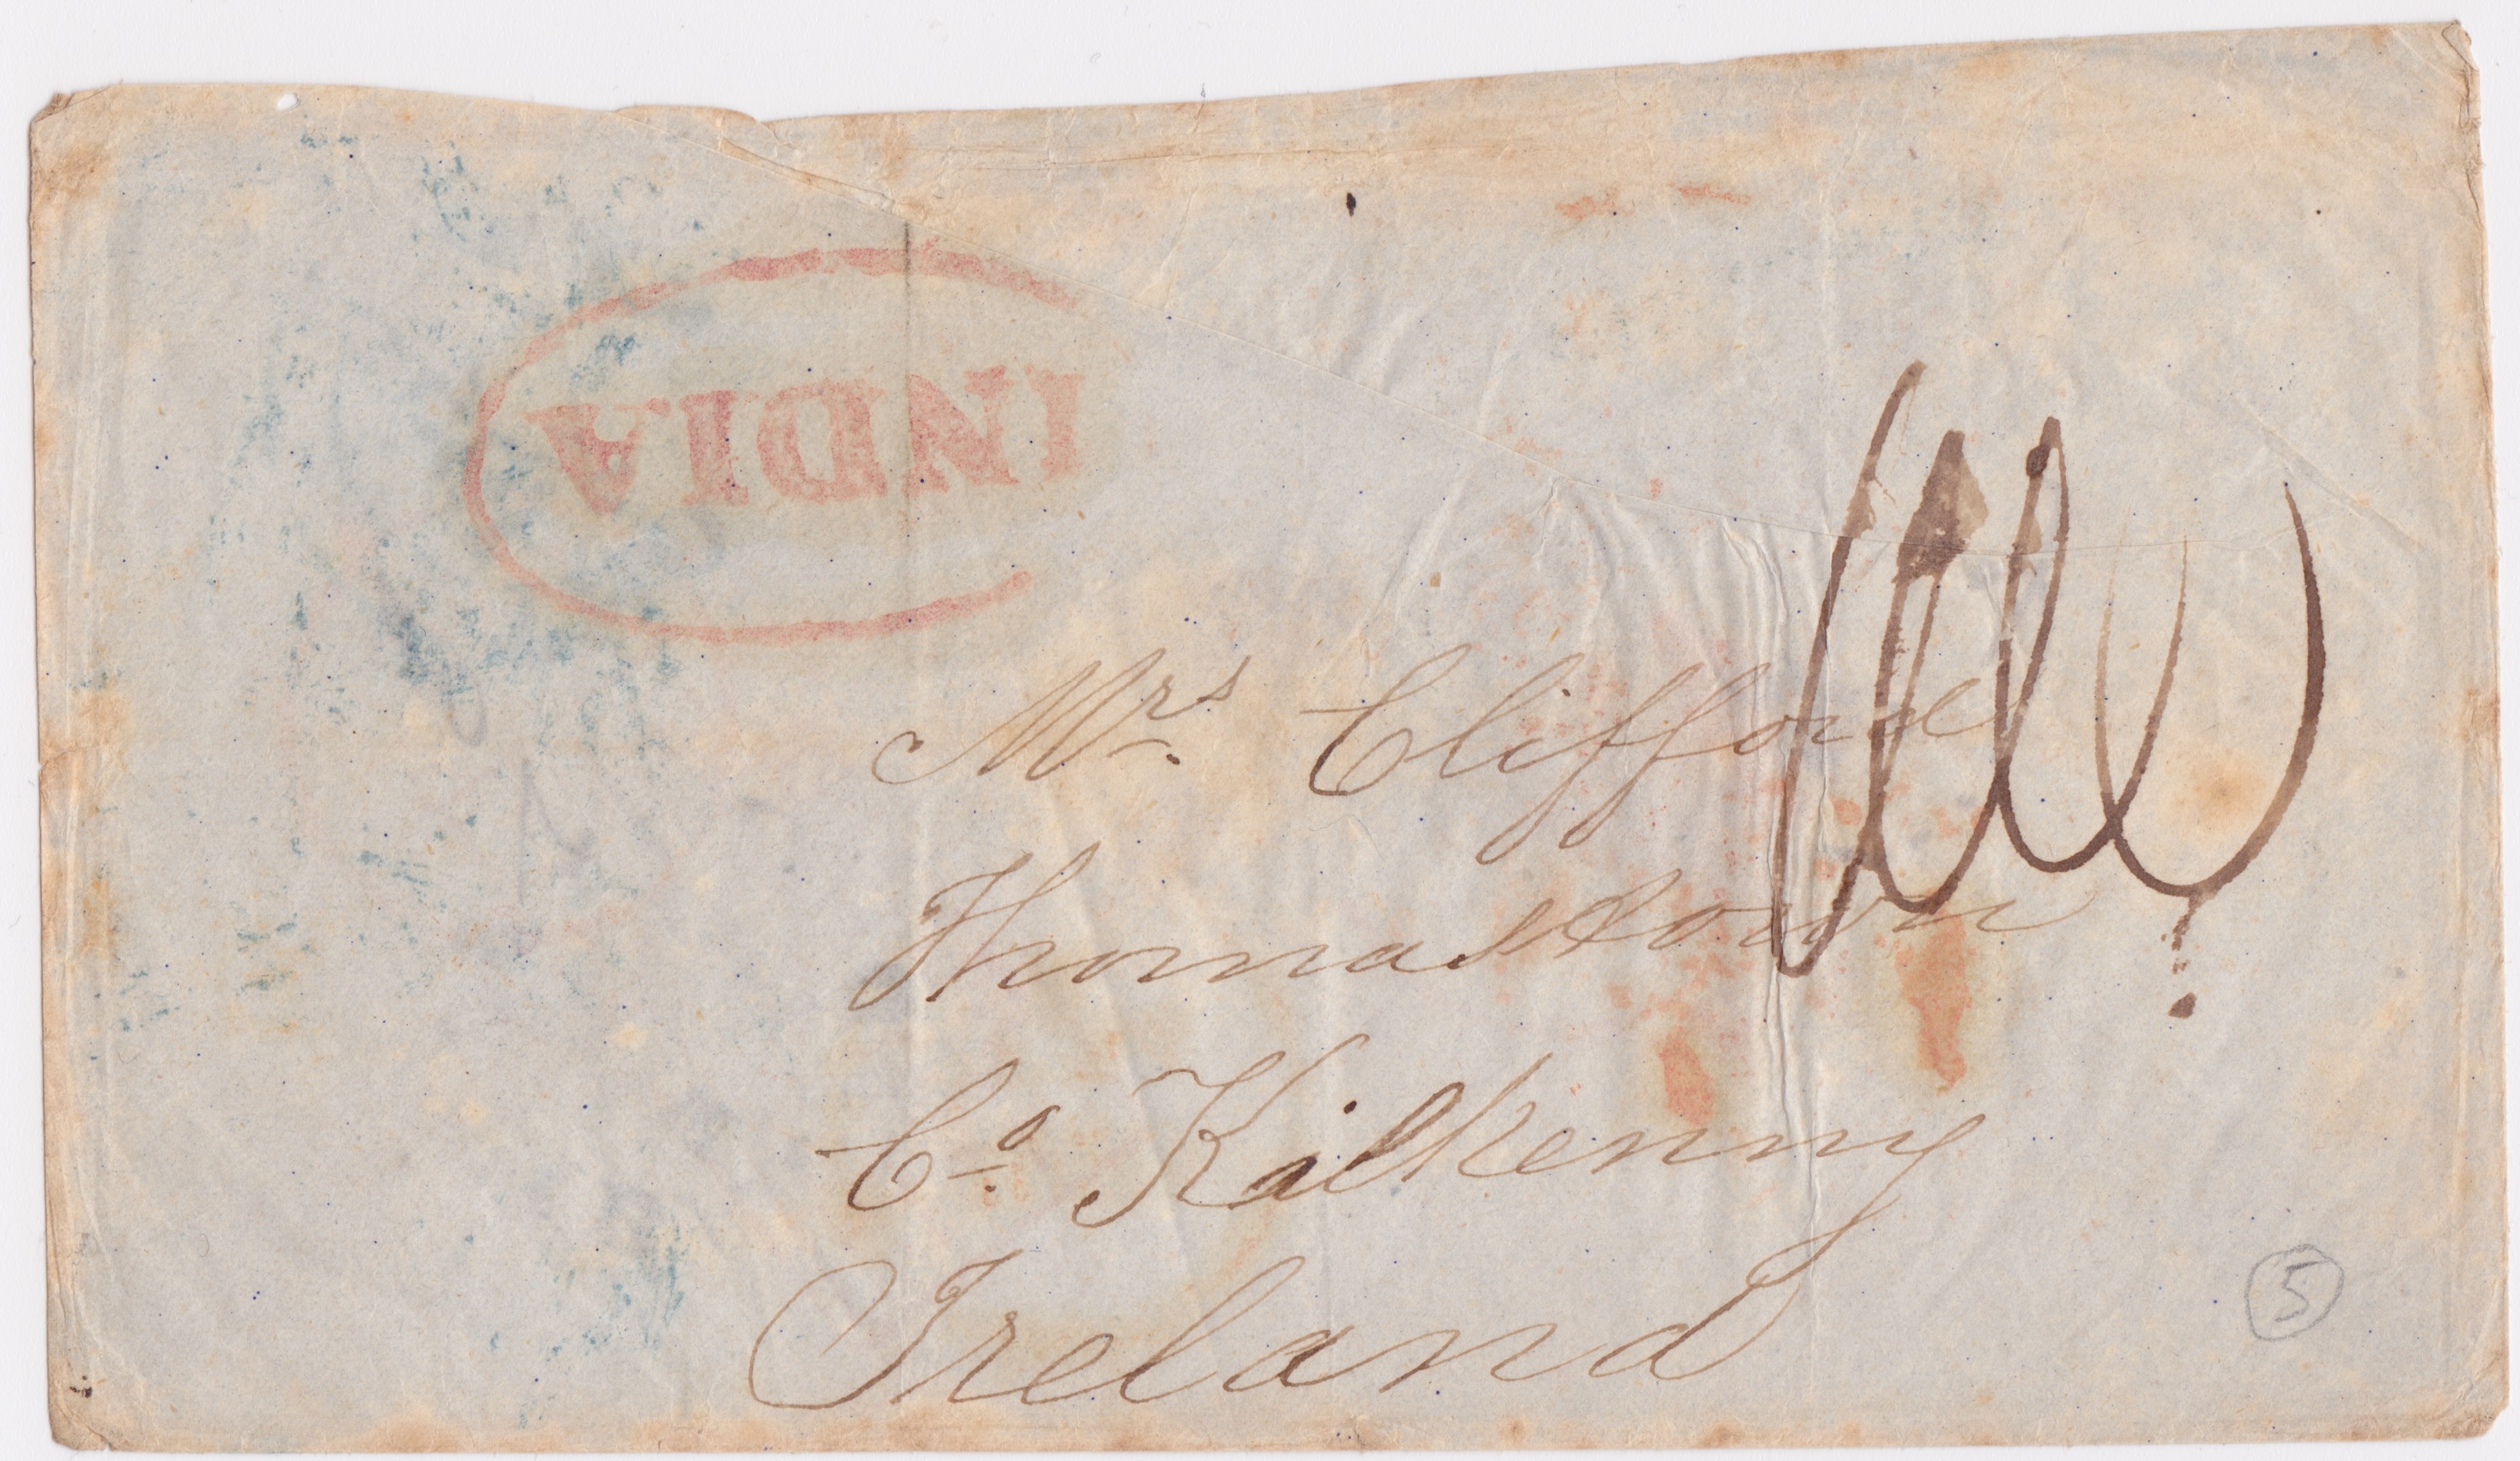 INDIA
Mrs. Clifford
Thomastown
Co. Kilkenny
Ireland
5